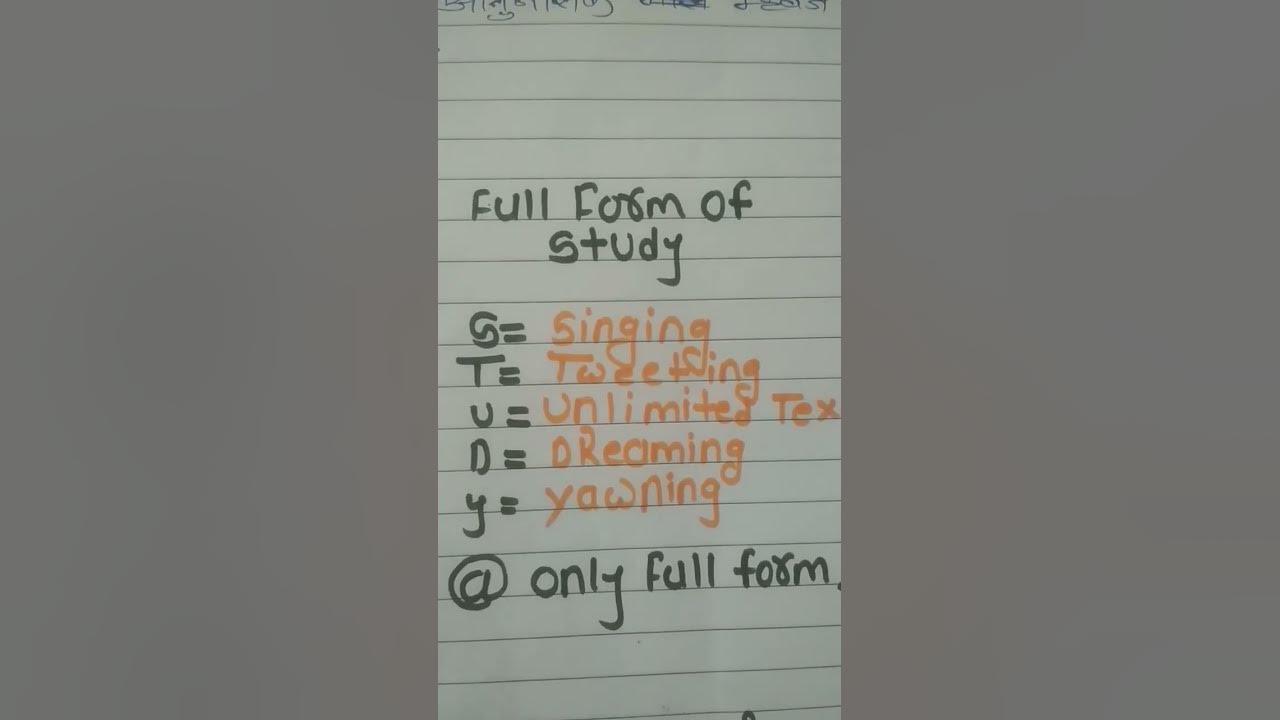 Full Form of
Study
S= Singing
T= Tweetsing
U= Unlimited Tex
D= DReaming
y= yawning
@ only Full form